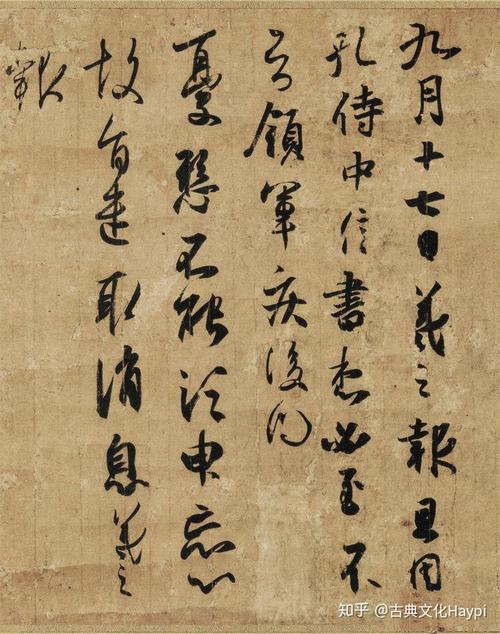 九月十七日羲之報且因
孔侍中信書想必至不
知領軍疾後問
憂懸不能須臾忘心
故旨遣取消息羲之
報
知乎 @古典文化Haypi